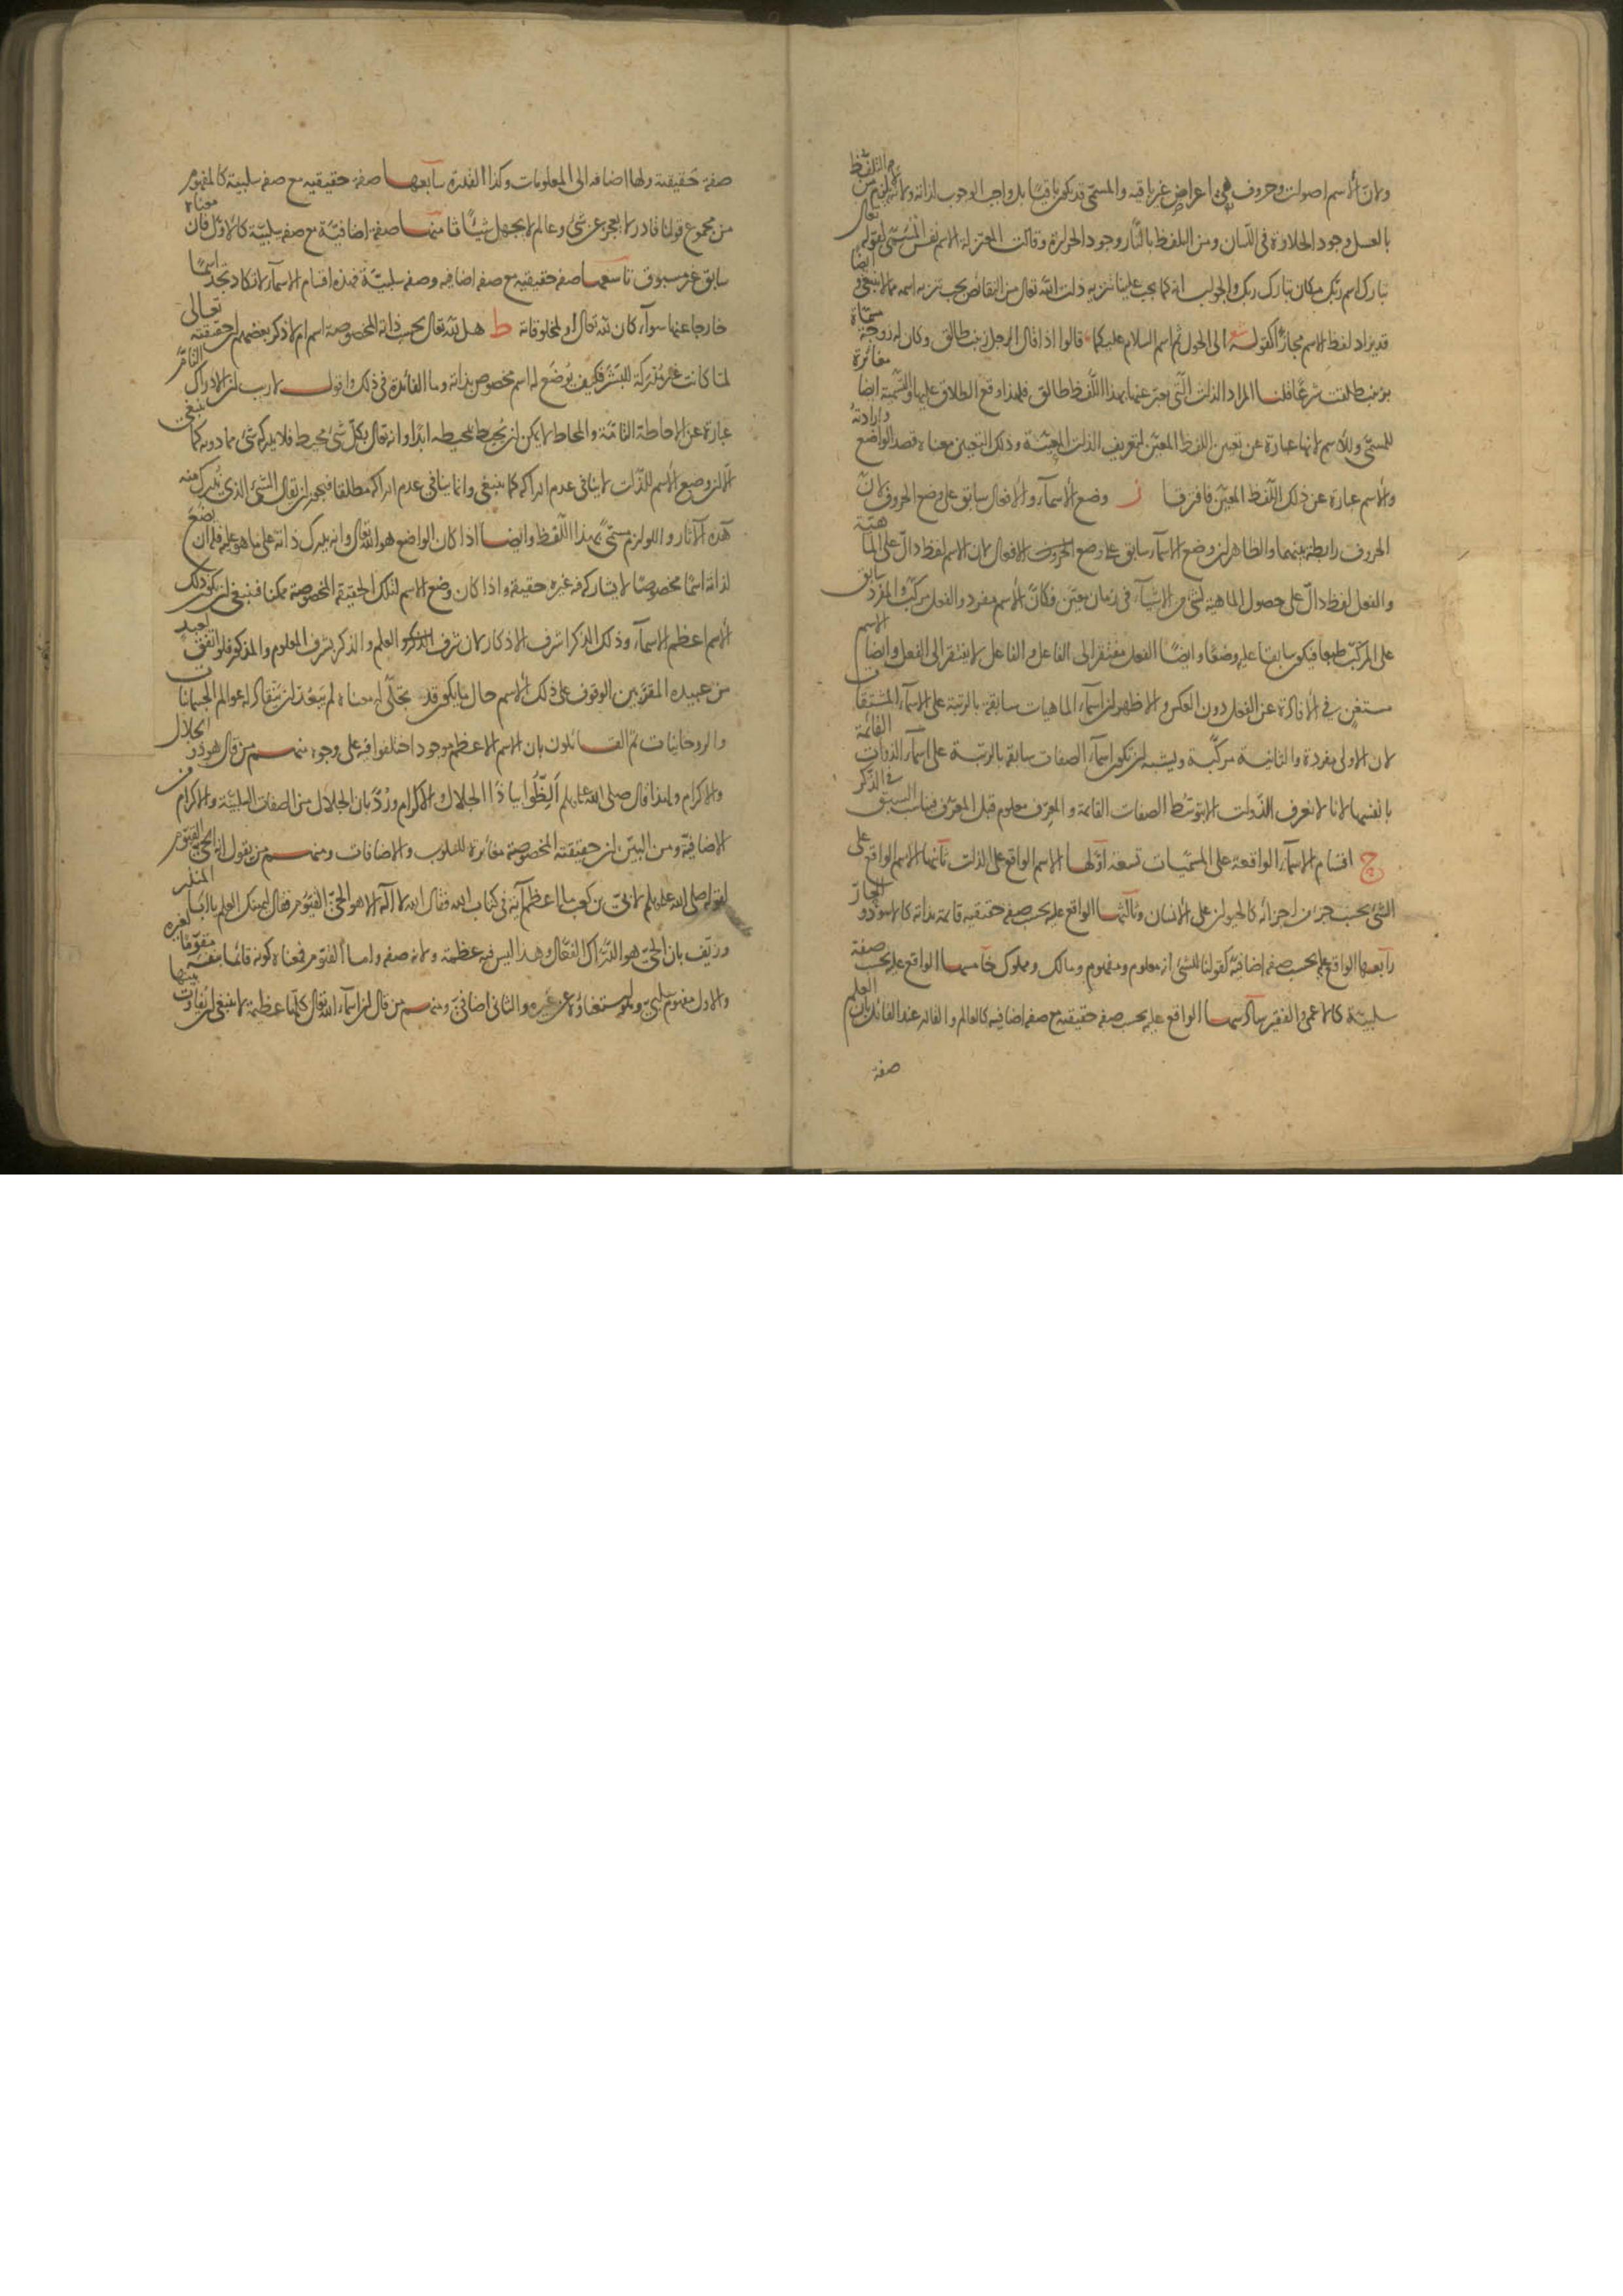 ولان الاسم اصوات وحروف هى اعراض غير باقيه والمسمى قد يكون باقيا بل واجب الوجوب لذاته ولانه لا يلزم من التلفظ
بالعسل وجود الحلاوة فى اللسان ومن التلفظ بالنار وجود الحرارة وقالت المعتزلة الاسم نفس المسمى لقوله تعالى
تبارك اسم ربك مكان تبارك ربك والجواب انه كما يجب علينا تنزيه ذات الله تعالى من النقائص يجب تنزيه اسمه مما لا ينبغى وايضا
قد يراد لفظ الاسم مجازا كقوله شعر الى الحول ثم اسم السلام عليكما قالوا اذا قال الرجل زينب طالق وكان له زوجة مسماة
بزينب طلقت شرعا قلنا المراد الذات التى يعبر عنها بهذا اللفظ طالق فلهذا وقع الطلاق عليها والتسمية ايضا مغائرة
للمسمى وللاسم لانها عبارة عن تعيين اللفظ المعين لتعريف الذات المعينة وذلك التعيين معناه قصد الواضع وارادته
والاسم عبارة عن ذلك اللفظ المعين فافترقا ز وضع الاسماء والافعال سابق على وضع الحروف لان
الحروف رابطة بينهما والظاهر ان وضع الاسماء سابق على وضع الافعال لان الاسم لفظ دال على الماهية
والفعل لفظ دال على حصول الماهية لشئ من الاشياء فى زمان معين فكان الاسم مفرد والفعل مركب والمفرد سابق
على المركب طبعا فيكون سابقا عليه وضعا وايضا الفعل مفتقر الى الفاعل والفاعل لا يفتقر الى الفعل وايضا الاسم
مستغن فى الافادة عن الفعل دون العكس والاظهر ان اسماء الماهيات سابقة بالرتبة على الاسماء المشتقات
لان الاولى مفردة والثانية مركبة ويشبه ان تكون اسماء الصفات سابقة بالرتبة على اسماء الذوات القائمة
بانفسها لانا لا نعرف الذوات الا بتوسط الصفات القائمة والمعرف معلوم قبل المعرف فناسب السبق فى الذكر
ح اقسام الاسماء الواقعة على المسميات تسعة اولها الاسم الواقع على الذات ثانيها الاسم الواقع على
الشئ بحسب جزء من اجزائه كالحيوان على الانسان وثالثها الواقع عليه بحسب صفة حقيقية قائمة بذاته كالاسود والحار
رابعها الواقع عليه بحسب صفة اضافية كقولنا للشئ انه معلوم ومفهوم ومالك ومملوك خامسها الواقع عليه بحسب صفة
سلبية كالاعمى والفقير سادسها الواقع عليه بحسب صفة حقيقية مع صفة اضافية كالعالم والقادر عند القائل بان العلم
صفة
صفة حقيقية ولها اضافه الى المعلومات وكذا القدرة سابعها صفة حقيقيه مع صفه سلبية كالمفهوم
من مجموع قولنا قادر لا يعجز عن شئ وعالم لا يجهل شيئا ثامنها صفة اضافية مع صفه سلبية كالاول فان معناه
سابق غير مسبوق تاسعها صفه حقيقيه مع صفه اضافيه وصفه سلبية فهذه اقسام الاسماء لا تكاد تجد اسما
خارجا عنها سواء كان لله تعالى او لمخلوقاته ط هل لله تعالى بحسب ذاته المخصوصة اسم ام لا ذكر بعضهم ان حقيقته تعالى
لما كانت غير مدركة للبشر فكيف يوضع له اسم مخصوص بذاته وما الفائدة فى ذلك واقول لا ريب ان الادراك التام
عبارة عن الاحاطة التامة والمحاط لا يمكن ان يحيط بمحيطه ابدا وانه تعالى بكل شئ محيط فلا يدركه شئ مما دونه كما ينبغى
الا ان وضع الاسم للذات لا ينافى عدم ادراكه كما ينبغى وانما ينافى عدم ادراكه مطلقا فيجوز ان يقال الشئ الذى تدرك منه
هذه الآثار واللوازم مسمى بهذا اللفظ وايضا اذا كان الواضع هو الله تعالى وانه يدرك ذاته على ما هو عليه فله ان يضع
لذاته اسما مخصوصا لا يشاركه فيه غيره حقيقة واذا كان وضع الاسم لتلك الحقيقة المخصوصة ممكنا فينبغى ان يكون ذلك
الاسم اعظم الاسماء وذلك الذكر اشرف الاذكار لان شرف العلم والذكر بشرف المعلوم والمذكور فلو اتفق لعبد
من عبيده المقربين الوقوف على ذلك الاسم حال ما يكون قد تجلى له معناه لم يبعد ان ينقاد له عوالم الجسمانيات
والروحانيات ثم القائلون بان الاسم الاعظم موجود اختلفوا فيه على وجوه منهم من قال هو ذو الجلال
والاكرام ولهذا قال صلى الله عليه وسلم الظوا بيا ذا الجلال والاكرام ورد بان الجلال من الصفات السلبية والاكرام من
الاضافية ومن البين ان حقيقته المخصوصة مغائرة للسلوب والاضافات ومنهم من يقول انه الحى القيوم
لقوله صلى الله عليه وسلم لابى بن كعب ما اعظم آية فى كتاب الله فقال الله لا اله الا هو الحى القيوم فقال ليهنك العلم يا ابا المنذر
وزيف بان الحى هو الدراك الفعال وهذا ليس فيه عظمة ولانه صفه واما القيوم فمعناه كونه قائما بنفسه مقوما لغيره
والاول مفهوم سلبى وهو استغناؤه عن غيره والثانى اضافى ومنهم من قال ان اسماء الله تعالى كلها عظيمة لا ينبغى ان يفاوت بينها